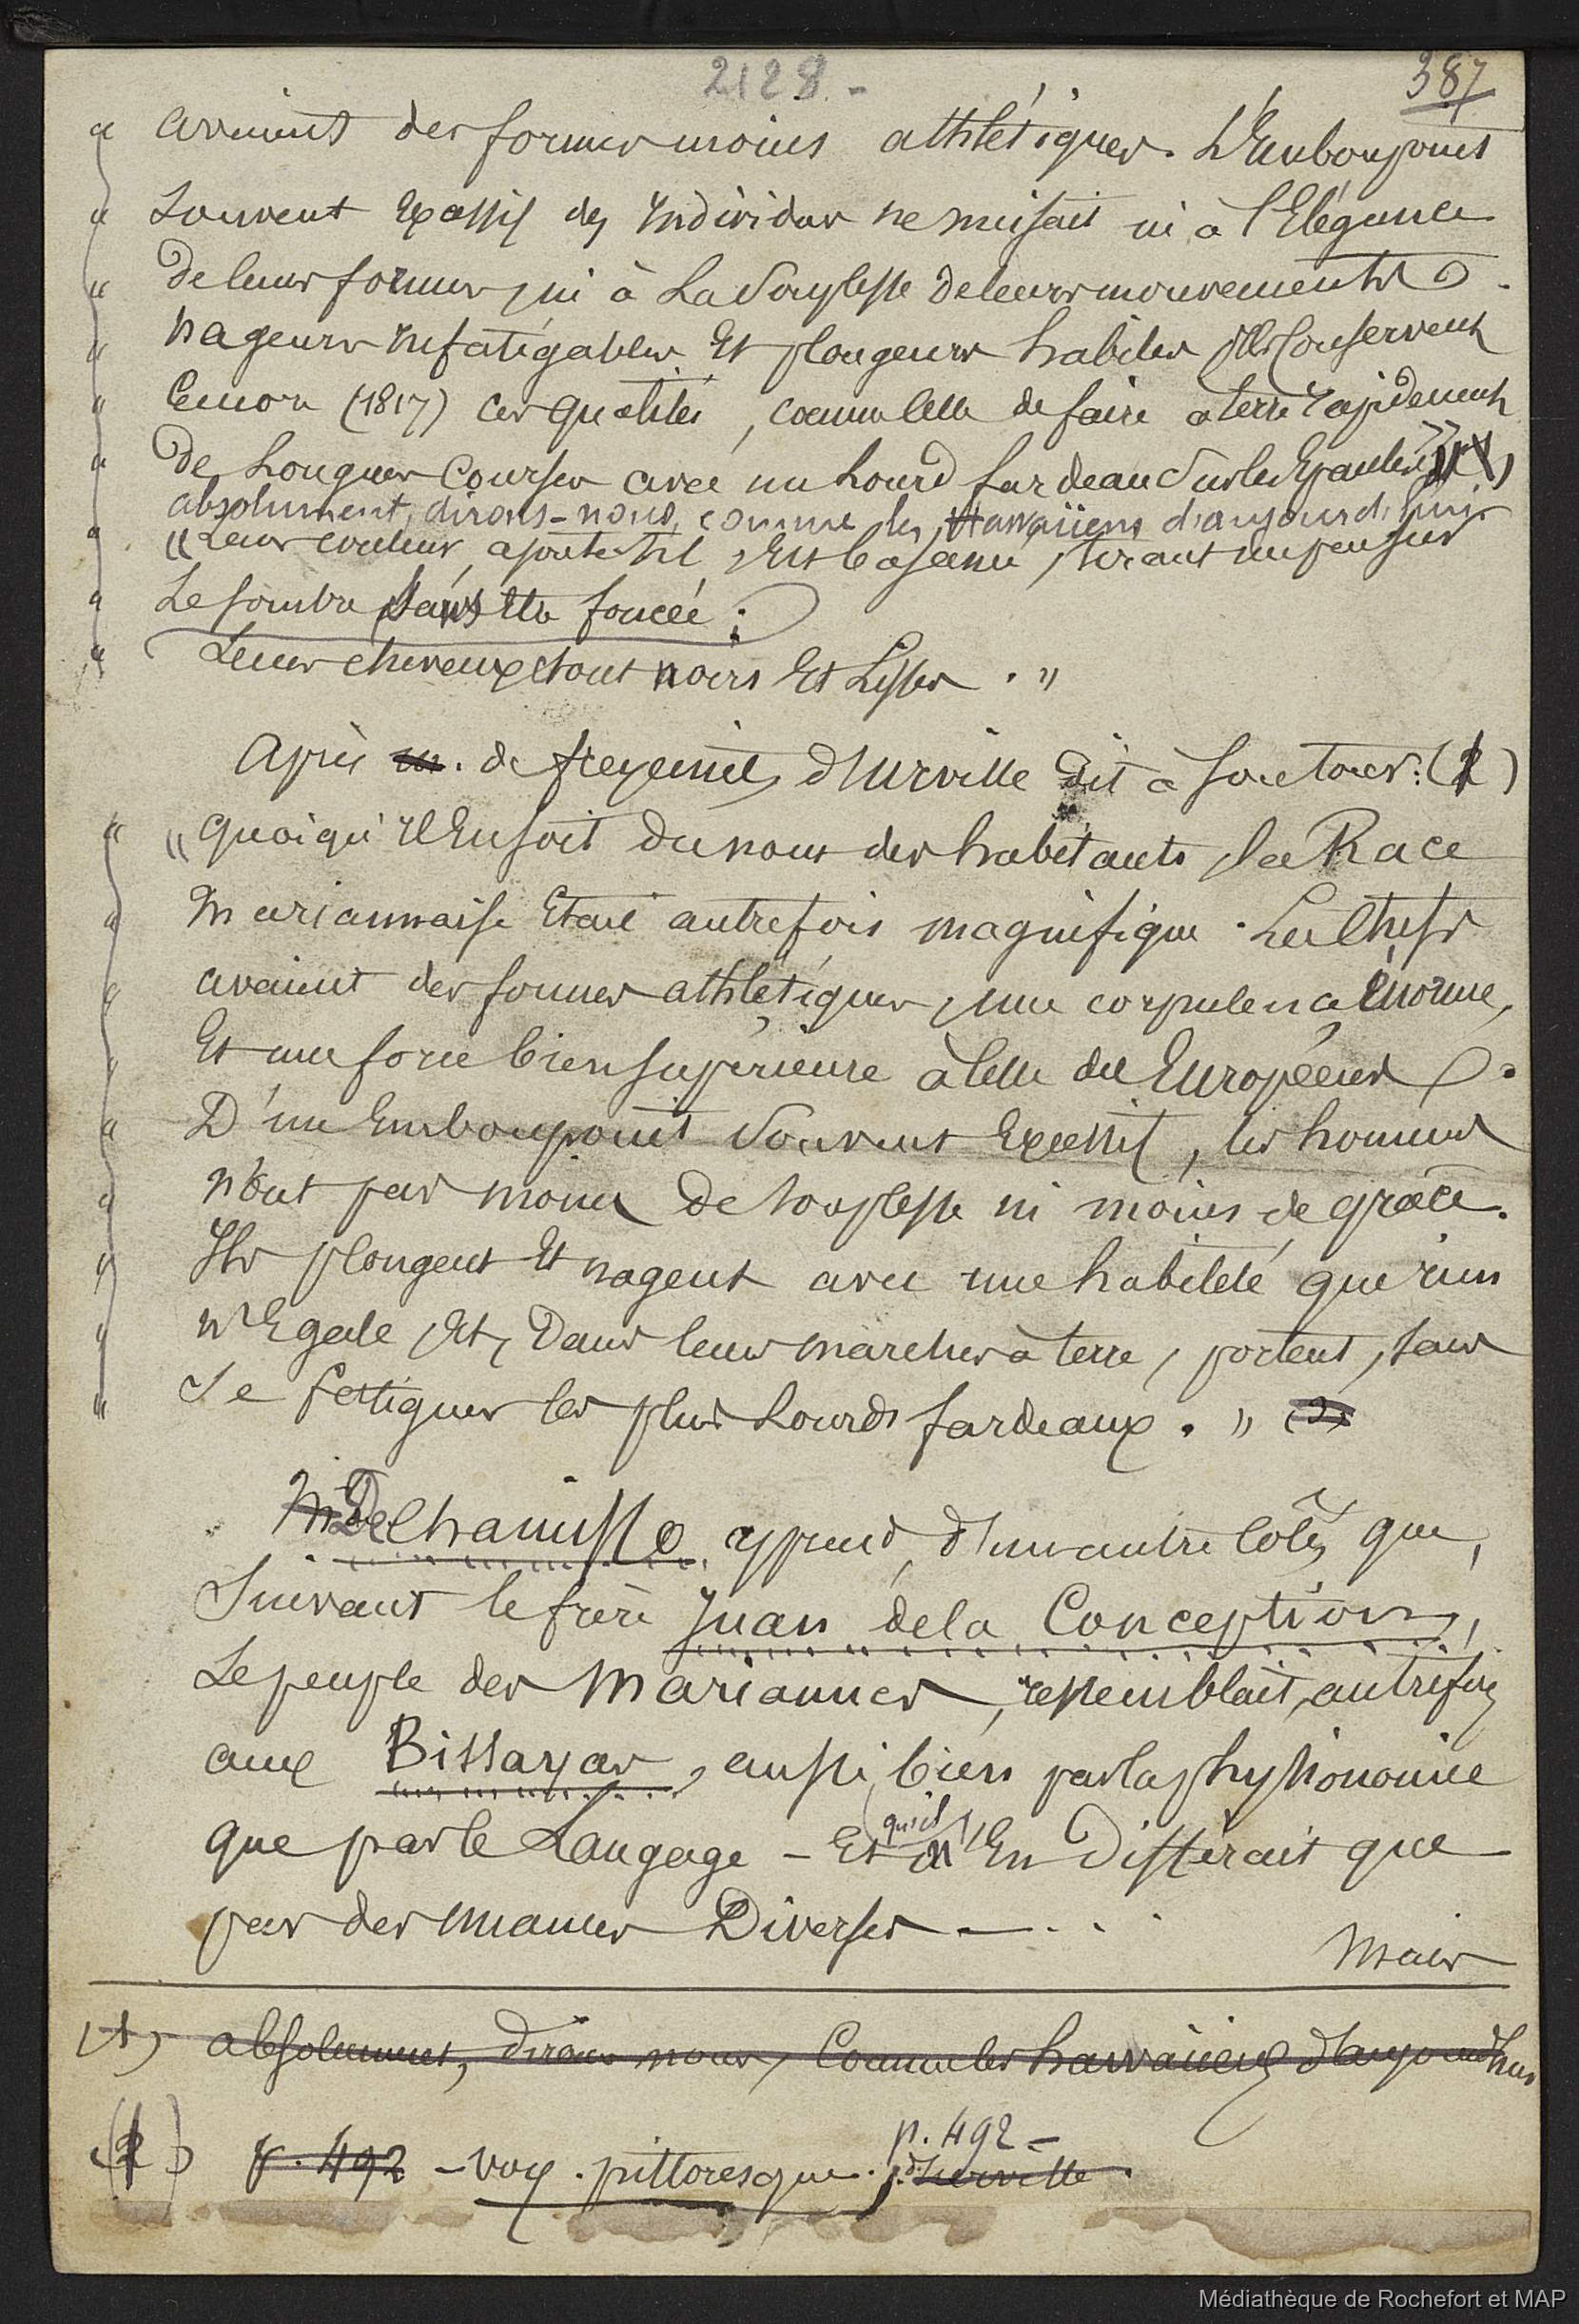 2128 -
387
" avaient des formes moins athlétiques. L'Embonpoint
" souvent Excessif des Individus ne nuisait ni à l'Elégance
" de leurs formes, ni à La Souplesse de leurs mouvements.
" Nageurs Infatigables Et plongeurs habiles, Ils Conservent
" Encore (1817) ces qualités, comme Celle de faire à terre rapidement
" De Longues Courses avec un Lourd fardeau Sur les Epaules »
absolument, dirons-nous, comme les Hawaïiens d'aujourd'hui
" « Leur couleur, ajoute-t-il, Est basanée, tirant un peu sur
" Le sombre sans Etre foncée ;
" Leurs cheveux sont noirs Et Lisses. "
Après m. de freycinet, d'Urville dit à son tour : (1)
" « Quoiqu'il En soit du nom des habitants, la Race
" Mariannaise Etait autrefois magnifique. Les Chefs
" avaient des formes athlétiques, une corpulence énorme,
" Et une force bien supérieure à Celle des Européens.
" D'un Embonpoint Souvent Excessif, les hommes
" n'ont pas moins De Souplesse ni moins de grâce.
" Ils plongent Et nagent avec une habileté que rien
" n'Egale, Et, Dans leurs marches à terre, portent, sans
" Se fatiguer les plus Lourds fardeaux. " (2)
M. De Chamisso apprend, d'un autre Côté, que,
Suivant le frère Juan de la Conception,
Le peuple des Mariannes, ressemblait, autrefois
aux Bissayas, aussi bien par la physionomie
que par le Langage – Et qu'il n'En Différait que
par des nuances Diverses — . . .
Mais
(1) absolument, dirons nous, Comme les hawaiiens d'aujourd'hui
(1) p. 492 – voy. pittoresque. p. 492 –
d'Urville.
Médiathèque de Rochefort et MAP